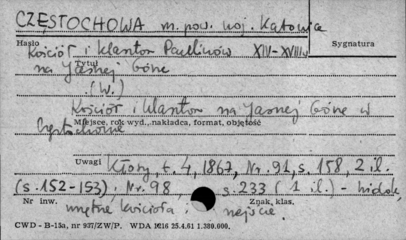 CZĘSTOCHOWA m. pow. woj. Katowice
Hasło
Sygnatura
Kościół i klasztor Paulinów XIV-XVIII w
Tytuł
na Jasnej Górze
(W.)
Kościół i klasztor na Jasnej Górze w
Miejsce, rok wyd., nakładca, format, objętość
Częstochowie
Uwagi Kłosy, t. 4, 1867, Nr. 91, s. 158, 2 il.
(s. 152-153), Nr. 98, s. 233 (1 il.) - widok,
Nr inw.
Znak, klas.
wnętrze kościoła i wejście.
CWD - B-15a, nr 937/ZW/P. WDA 1216 25.4.61 1.300.000.